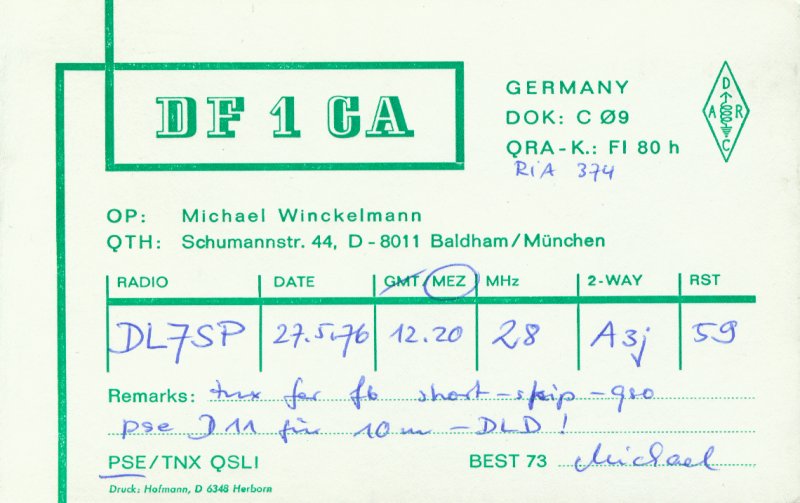 DF 1 CA
GERMANY
DOK: C Ø9
QRA-K.: FI 80 h
RiA 374
D
A R
C
OP: Michael Winckelmann
QTH: Schumannstr. 44, D-8011 Baldham/München
RADIO DATE GMT/MEZ MHz 2-WAY RST
DL7SP 27.5.76 12.20 28 A3j 59
Remarks: tnx for fb short-skip-qso
pse D11 für 10m-DLD!
PSE/TNX QSLI BEST 73 Michael
Druck: Hofmann, D 6348 Herborn